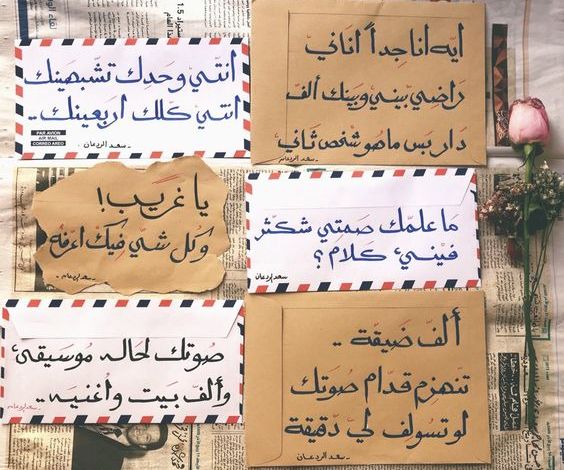 أنتي وحدك تشبهينك
انتي كلك اربعينك..
PAR AVION
AIR MAIL
CORREO AREO
- سعد الردعان
أيه أنا جداً أناني
راضي بيني وبينك ألف
دار بس ماهو شخص ثاني
سعد الردعان
يا غريب!
وكل شي فيك اعرفه
- سعد الردعان
ما علمك صمتي شكثر
فيني كلام؟
سعد الردعان -
صوتك لحاله موسيقى
وألف بيت وأغنيه..
سعد الردعان -
ألف ضيقة..
تنهزم قدام صوتك
لو تسولف لي دقيقة
- سعد الردعان